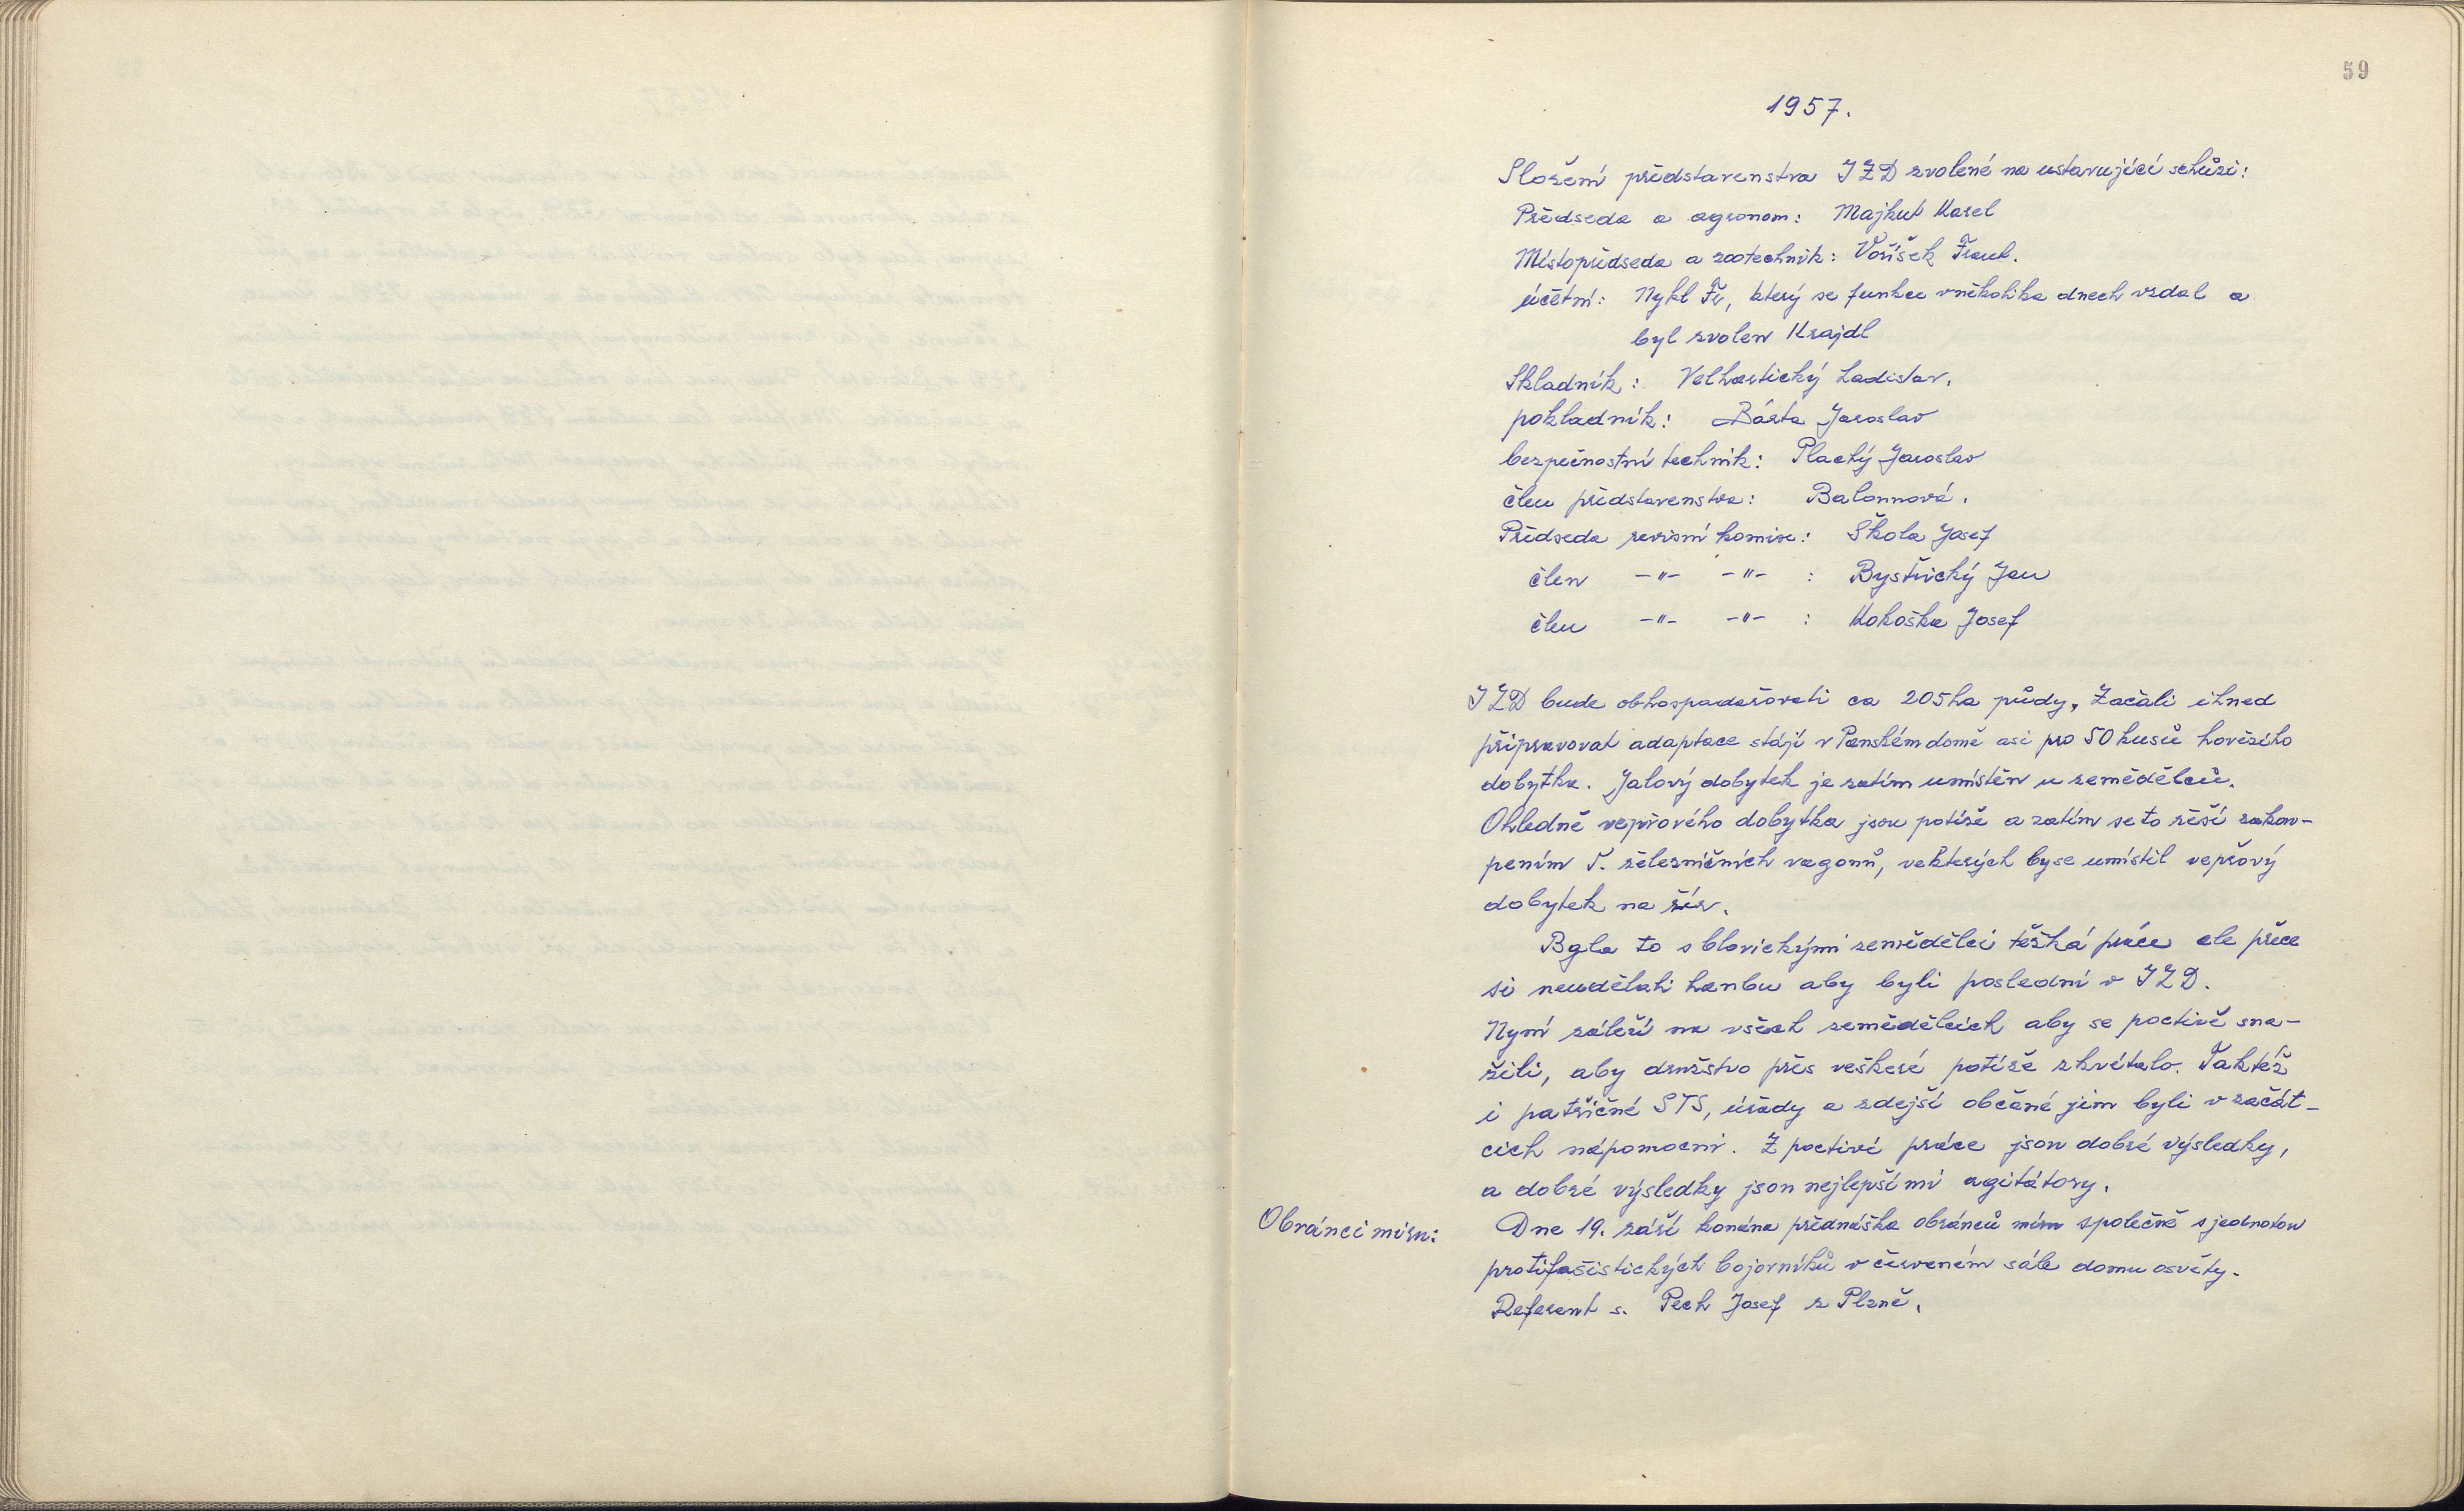 59
1957.
Složení představenstva JZD zvolené na ustavující schůzi:
Předseda a agronom: Majkut Karel
Místopředseda a zootechnik: Voříšek Frant.
účetní: Nykl Fr, který se funkce v několika dnech vzdal a
byl zvolen Krajdl
Skladník: Velhartický Ladislav.
pokladník: Bárta Jaroslav
bezpečnostní technik: Plachý Jaroslav
člen představenstva: Balounová.
Předseda revisní komise: Škola Josef
člen -"- -"- : Bystřický Jan
člen -"- -"- : Kokoška Josef
JZD bude obhospodařovati ca 205ha půdy, Začali ihned
připravovat adaptace stájí v Panském domě asi pro 50 kusů hovězího
dobytka. Jalový dobytek je zatím umístěn u zemědělců.
Ohledně vepřového dobytka jsou potíže a zatím se to řeší zakou-
pením 5. železničních vagonů, ve kterých by se umístil vepřový
dobytek na žír.
Byla to s blovickými zemědělci těžká práce ale přece
si neudělali hanbu aby byli poslední v JZD.
Nyní záleží na všech zemědělcích aby se poctivě sna-
žili, aby družstvo přes veškeré potíže zkvétalo. Taktéž
i patřičné STS, úřady a zdejší občané jim byli v začát-
cích nápomocni. Z poctivé práce jsou dobré výsledky,
a dobré výsledky jsou nejlepšími agitátory.
Obránci míru: Dne 19. září konána přednáška obránců míru společně s jednotou
protifašistických bojovníků v červeném sále domu osvěty.
Referent s. Pech Josef z Plzně.